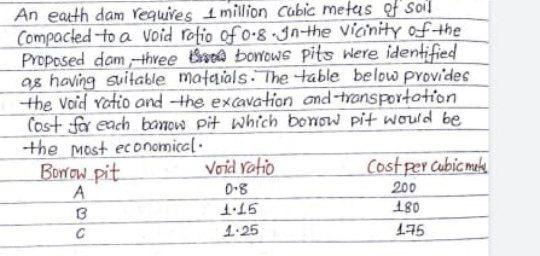 An earth dam requires 1 million Cubic metes of soil
Compacted to a void ratio of 0.8. In the vicinity of the
Proposed dam, three borrows pits were identified
as having suitable mateials. The table below provides
the void ratio and the excavation and transportation
Cost for each borrow pit which borrow pit would be
the most economical.
Borrow pit Void ratio Cost per Cubic mete
A 0.8 200
B 1.15 180
C 1.25 175